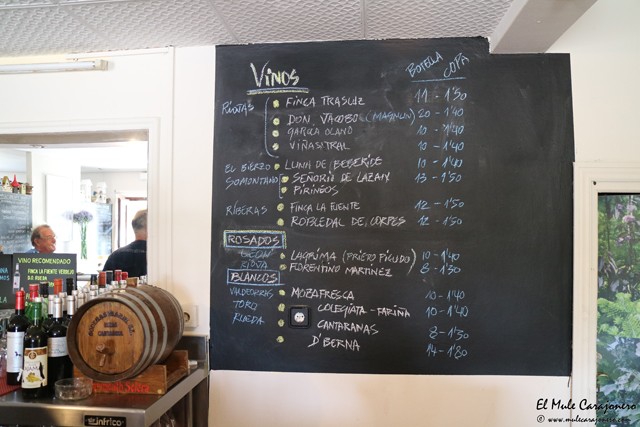 Vinos BOTELLA COPA
RIOJAS FINCA TRASLIZ 11 - 1'50
DON JACOBO (MAGNUN) 20 - 1'40
OLANO 10 - 1'40
VIÑASTRAL 10 - 1'40
EL BIERZO LUNA DE BEBERIDE 10 - 1'40
SOMONTANO SEÑORIO DE LAZAN 13 - 1'50
PIRINEOS
RIBERAS FINCA LA FUENTE 12 - 1'50
ROBLEDAL DE CORPES 12 - 1'50
ROSADOS
LEON LAGRIMA (PRIETO PICUDO) 10 - 1'40
RIOJA FLORENTINO MARTINEZ 8 - 1'30
BLANCOS
VALDEORRAS MOZAFRESCA 10 - 1'40
TORO COLEGIATA - FARIÑA 10 - 1'40
RUEDA CANTARANAS 8 - 1'30
D'BERNA 14 - 1'80
VINO RECOMENDADO
FINCA LA FUENTE VERDEJO
D.O. RUEDA
infrico
El Mule Carajonero
© www.mulecarajonero.com